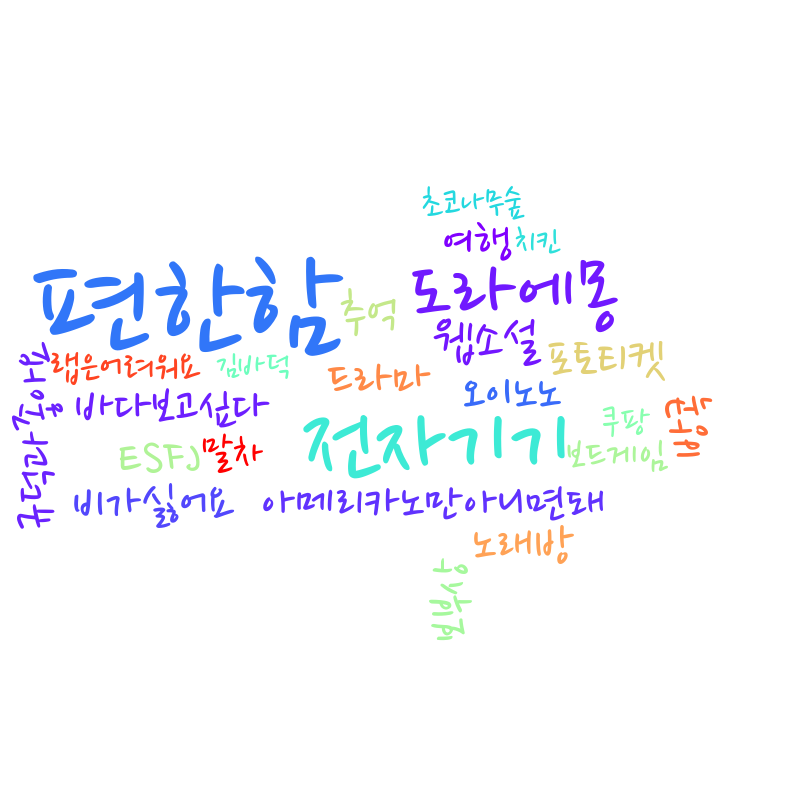 초코나무숲
여행
치킨
편한함
도라에몽
추억
웹소설
랩은어려워요
김바덕
드라마
포토티켓
오이노노
바다보고싶다
전자기기
쿠팡
ESFJ
말차
보드게임
비가싫어요
아메리카노만아니면돼
노래방